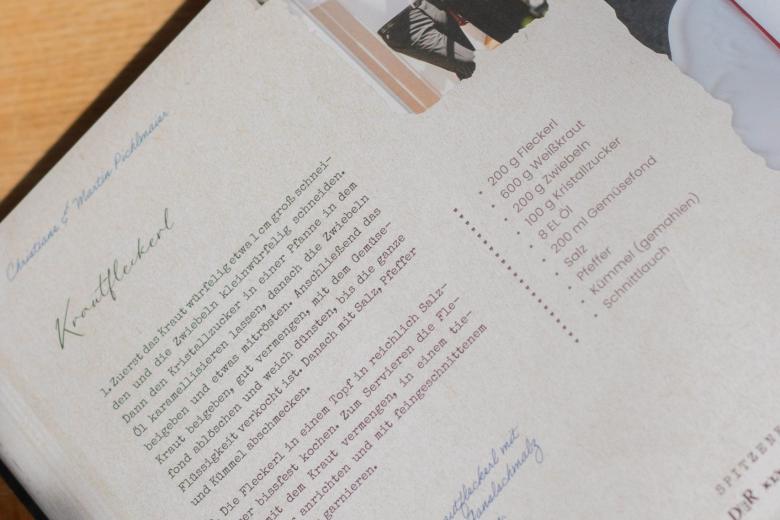 Christiane & Martin Pichlmaier
Krautfleckerl
1. Zuerst das Kraut würfelig etwa 1 cm groß schnei-
den und die Zwiebeln kleinwürfelig schneiden.
Dann den Kristallzucker in einer Pfanne in dem
Öl karamellisieren lassen, danach die Zwiebeln
beigeben und etwas mitrösten. Anschließend das
Kraut beigeben, gut vermengen, mit dem Gemüse-
fond ablöschen und weich dünsten, bis die ganze
Flüssigkeit verkocht ist. Danach mit Salz, Pfeffer
und Kümmel abschmecken.
Die Fleckerl in einem Topf in reichlich Salz-
bissfest kochen. Zum Servieren die Fle-
mit dem Kraut vermengen, in einem tie-
anrichten und mit feingeschnittenem
garnieren.
• 200 g Fleckerl
• 600 g Weißkraut
• 200 g Zwiebeln
• 100 g Kristallzucker
• 8 EL Öl
• 200 ml Gemüsefond
• Salz
• Pfeffer
• Kümmel (gemahlen)
• Schnittlauch
mit
SPITZEN
DER